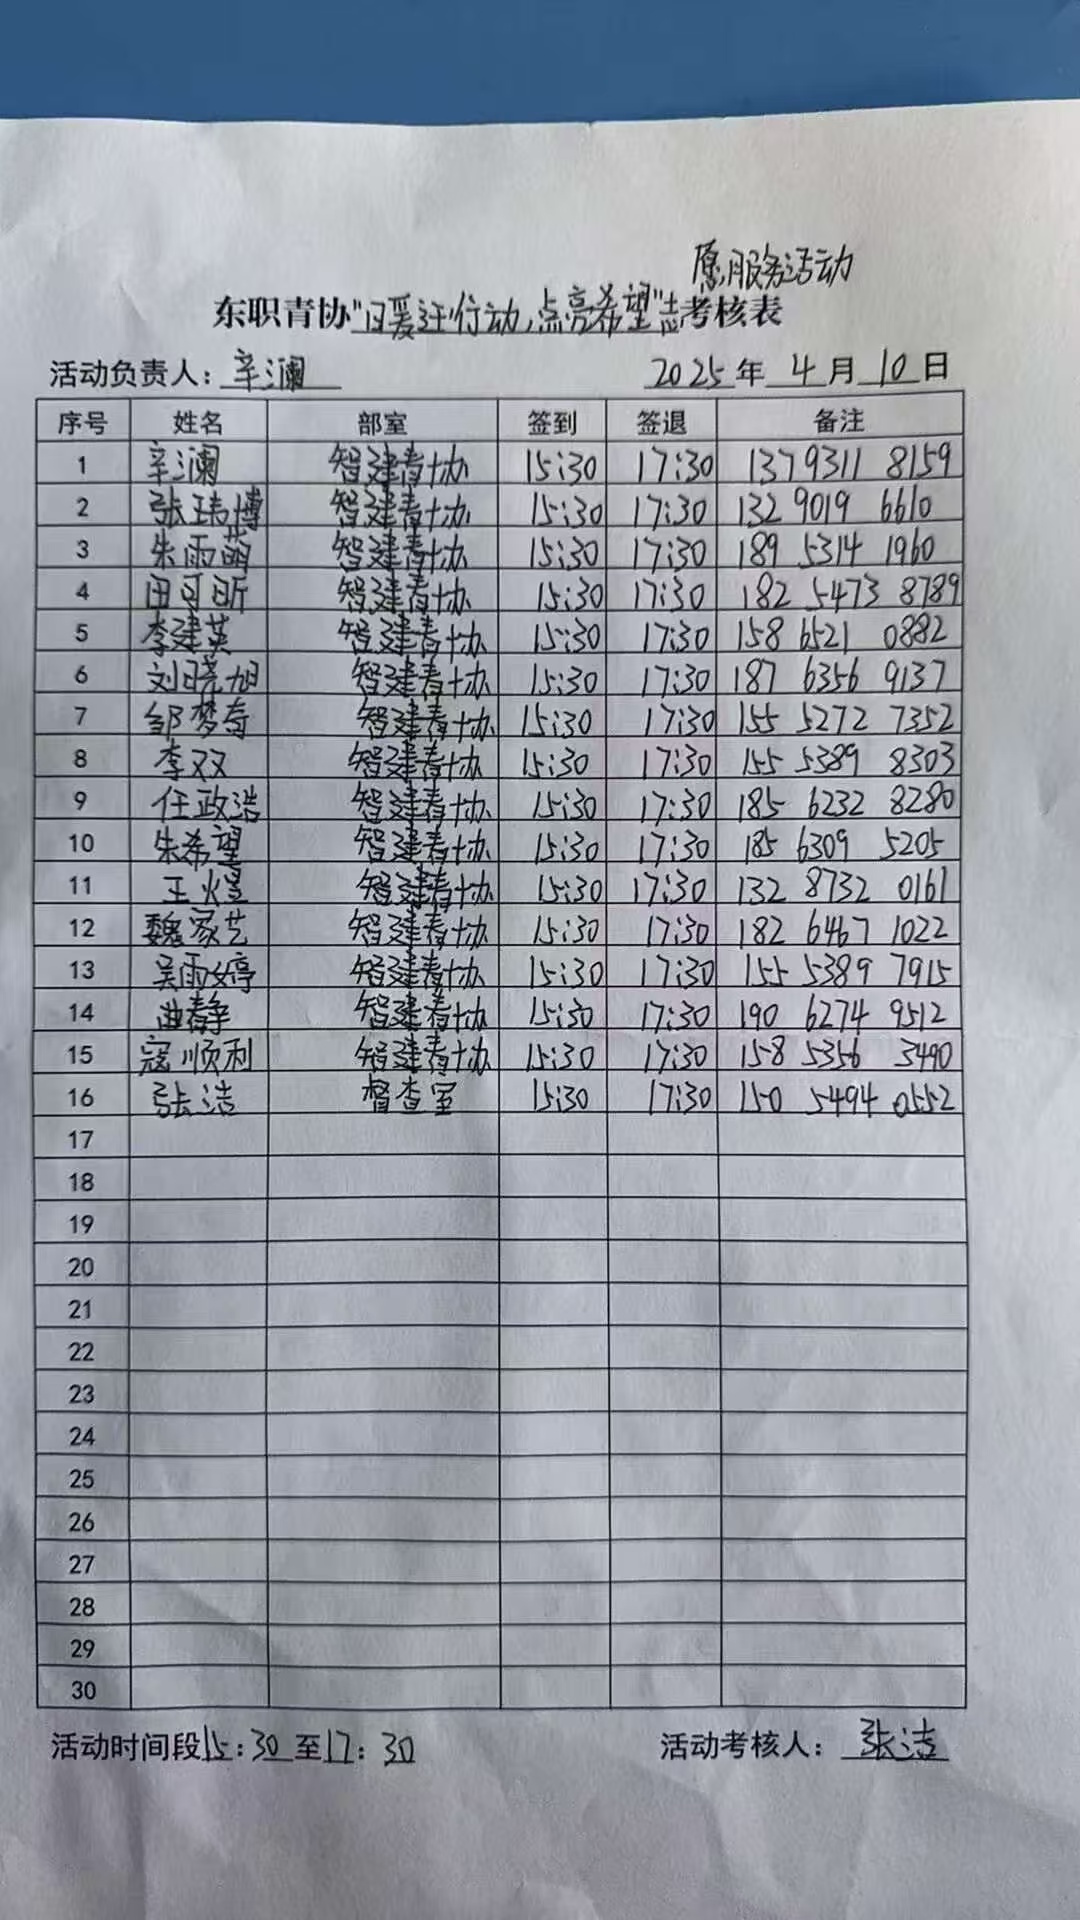 愿服务活动
东职青协"日暖汪行动,点亮希望"志考核表
活动负责人:辛澜 2025年4月10日
序号 姓名 部室 签到 签退 备注
1 辛澜 智建青协 15:30 17:30 137 9311 8159
2 张玮博 智建青协 15:30 17:30 132 9019 6610
3 朱雨萌 智建青协 15:30 17:30 189 5314 1960
4 田可昕 智建青协 15:30 17:30 182 5473 8789
5 李建英 智建青协 15:30 17:30 158 6521 0882
6 刘晓旭 智建青协 15:30 17:30 187 6356 9137
7 邹梦奇 智建青协 15:30 17:30 155 5272 7352
8 李双 智建青协 15:30 17:30 155 5389 8303
9 任政浩 智建青协 15:30 17:30 185 6232 8280
10 朱希望 智建青协 15:30 17:30 185 6309 5205
11 王煜 智建青协 15:30 17:30 132 8732 0161
12 魏家艺 智建青协 15:30 17:30 182 6467 1022
13 吴雨婷 智建青协 15:30 17:30 155 5389 7915
14 曲静 智建青协 15:30 17:30 190 6274 9512
15 寇顺利 智建青协 15:30 17:30 158 5356 3490
16 张洁 督查室 15:30 17:30 150 5494 0552
17
18
19
20
21
22
23
24
25
26
27
28
29
30
活动时间段15:30至17:30 活动考核人:张洁